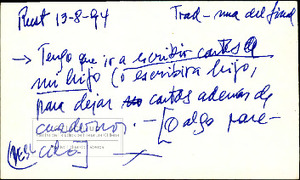 Rust 13-8-94
Trad-una del final
→ Tengo que ir a escribir cartas a
mi hijo (o escribir a hijo,
para dejar cartas además de
cuaderno. —[O algo pare-
cido]